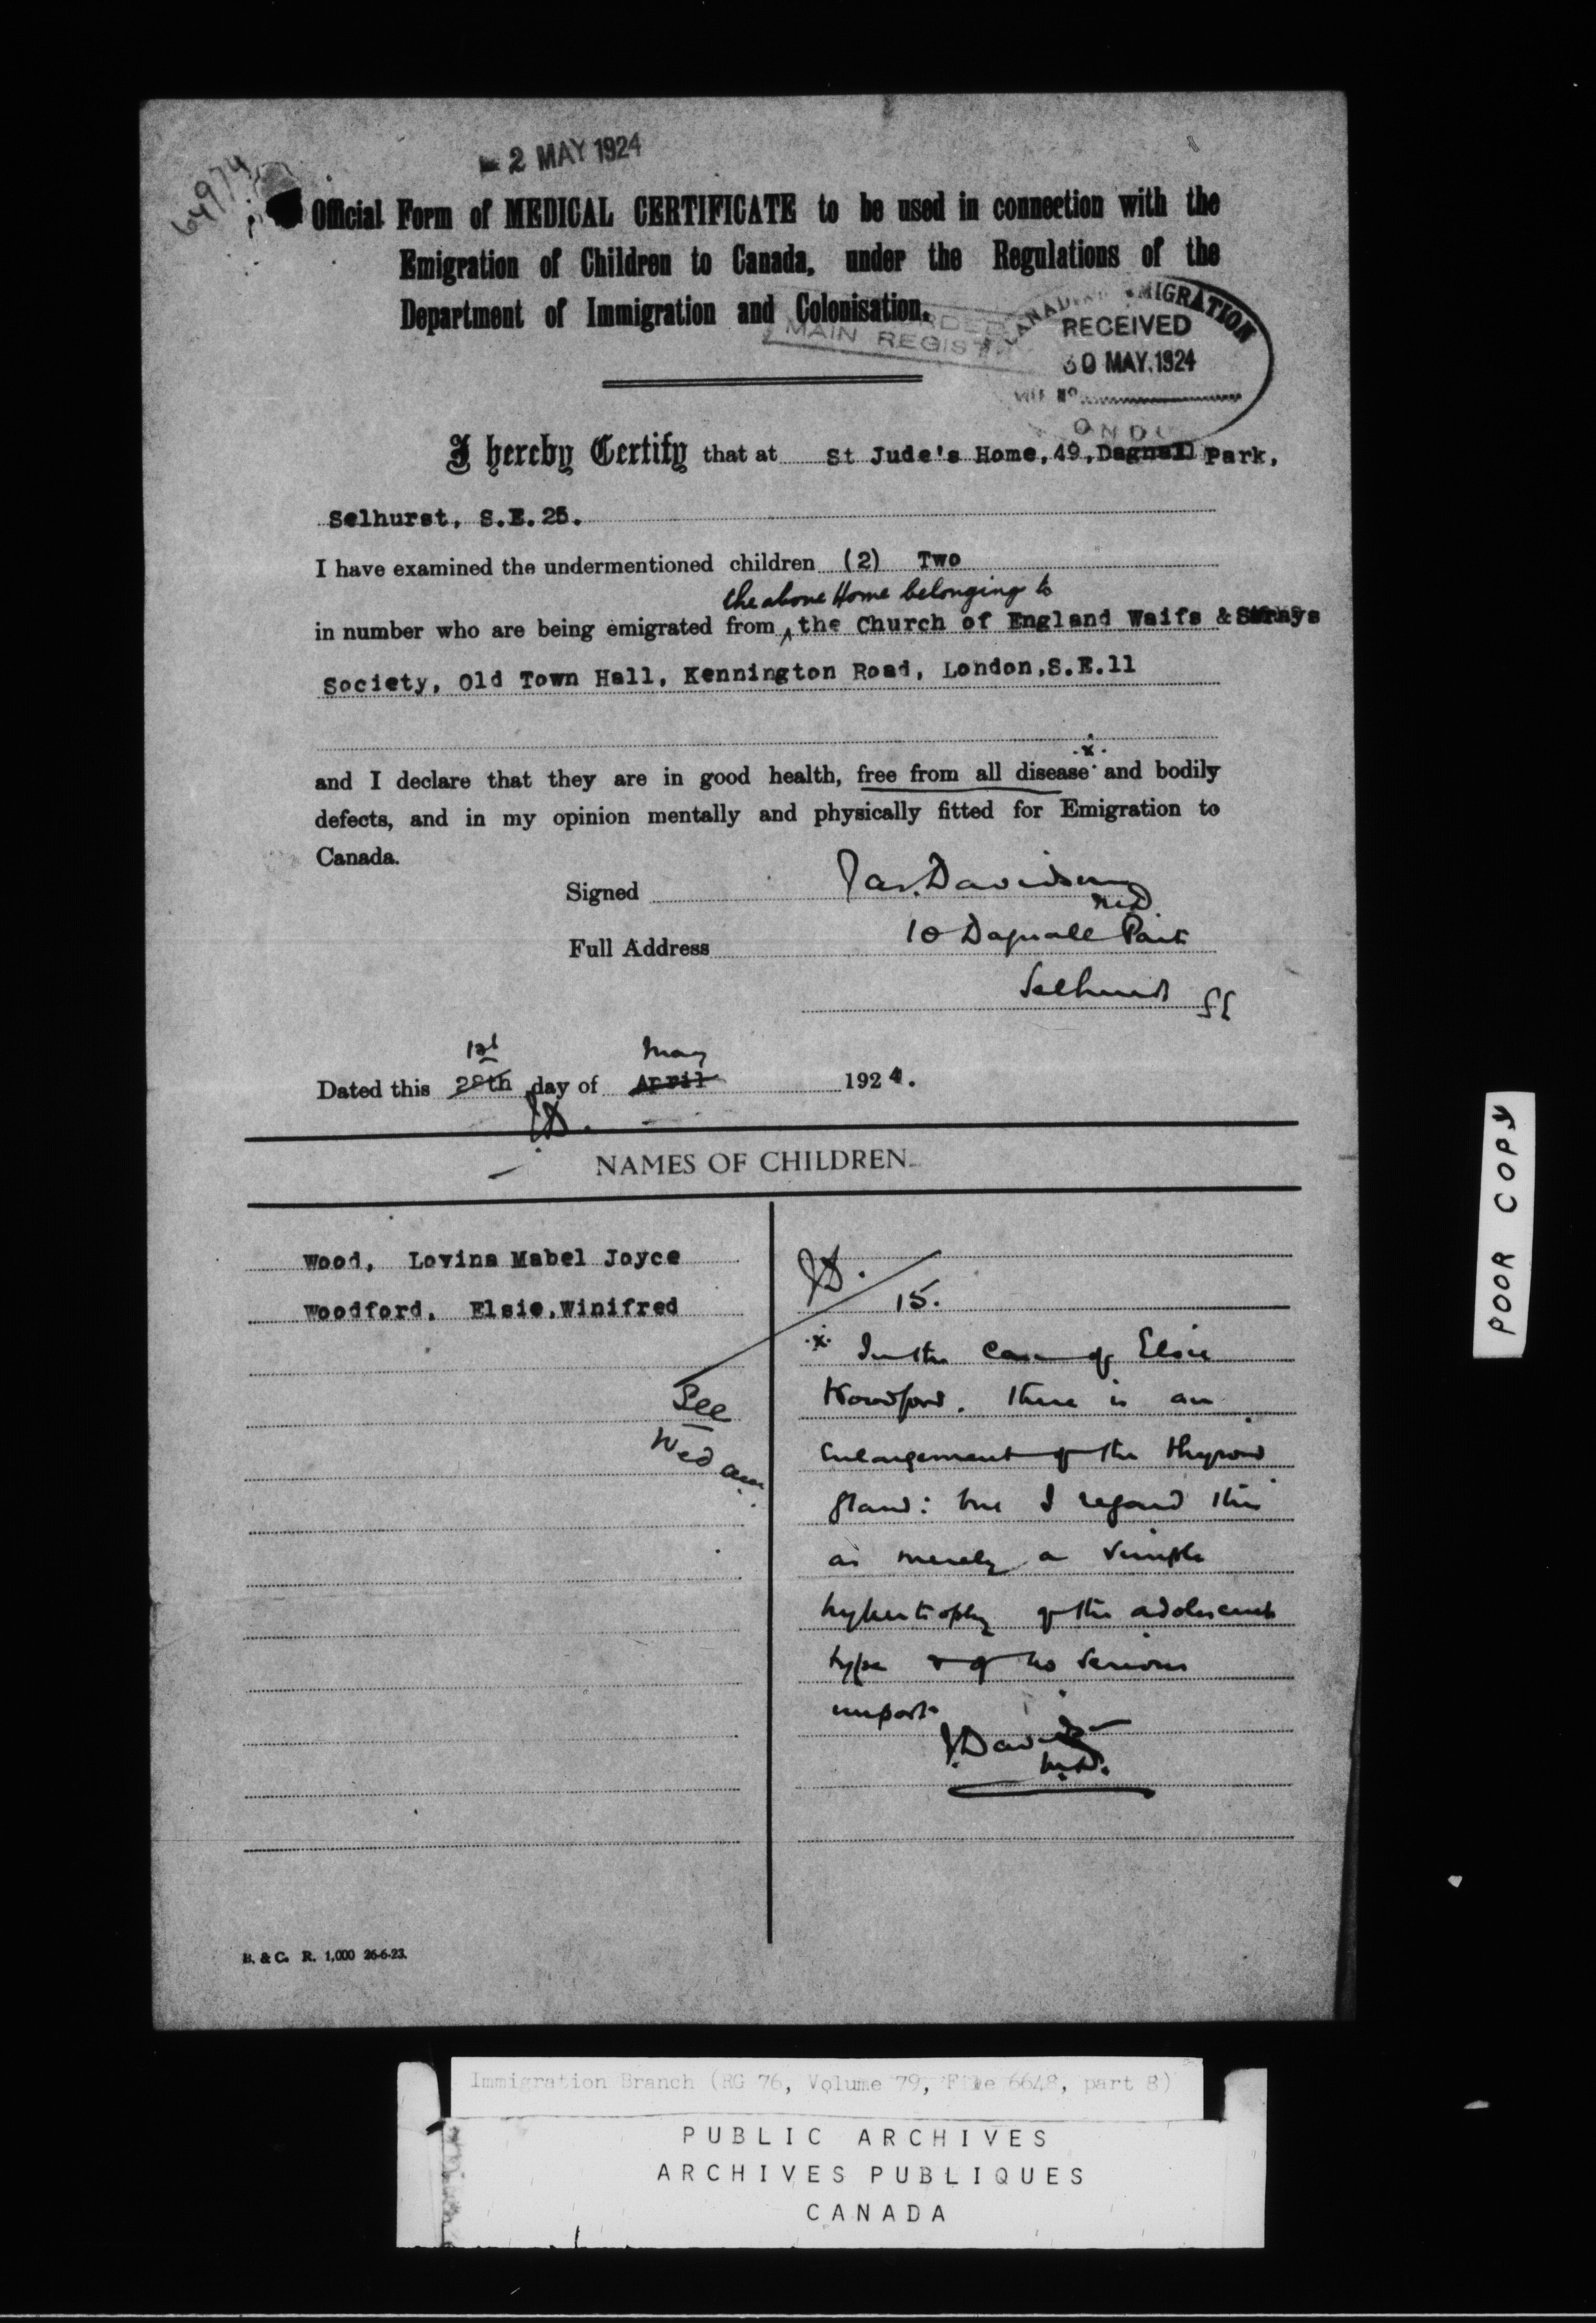 64974
2 MAY 1924
Official Form of MEDICAL CERTIFICATE to be used in connection with the
Emigration of Children to Canada, under the Regulations of the
Department of Immigration and Colonisation.
MAIN REGIST
EMIGRATION
RECEIVED
30 MAY.1924
I hereby Certify that at St Jude's Home,49,Dagnall Park,
Selhurst, S.E.25.
I have examined the undermentioned children (2) Two
the above Home belonging to
in number who are being emigrated from the Church of England Waifs & Strays
Society, Old Town Hall, Kennington Road, London,S.E.11
x
and I declare that they are in good health, free from all disease and bodily
defects, and in my opinion mentally and physically fitted for Emigration to
Canada.
Signed Jas. Davidson
M.D.
Full Address 10 Dagnall Park
Selhurst SE
1st May
Dated this 28th day of April 1924.
JD.
NAMES OF CHILDREN
Wood, Lovina Mabel Joyce
Woodford, Elsie,Winifred
JD.
15.
See
x In the case of Elsie
Woodford. there is an
enlargement of the thyroid
gland: but I regard this
as merely a simple
hypertrophy of the adolescent
type & of no serious
import
J.Davidson
M.D.
B. & C. R. 1,000 26-6-23.
POOR COPY
Immigration Branch (RG 76, Volume 79, File 6648, part 8)
PUBLIC ARCHIVES
ARCHIVES PUBLIQUES
CANADA